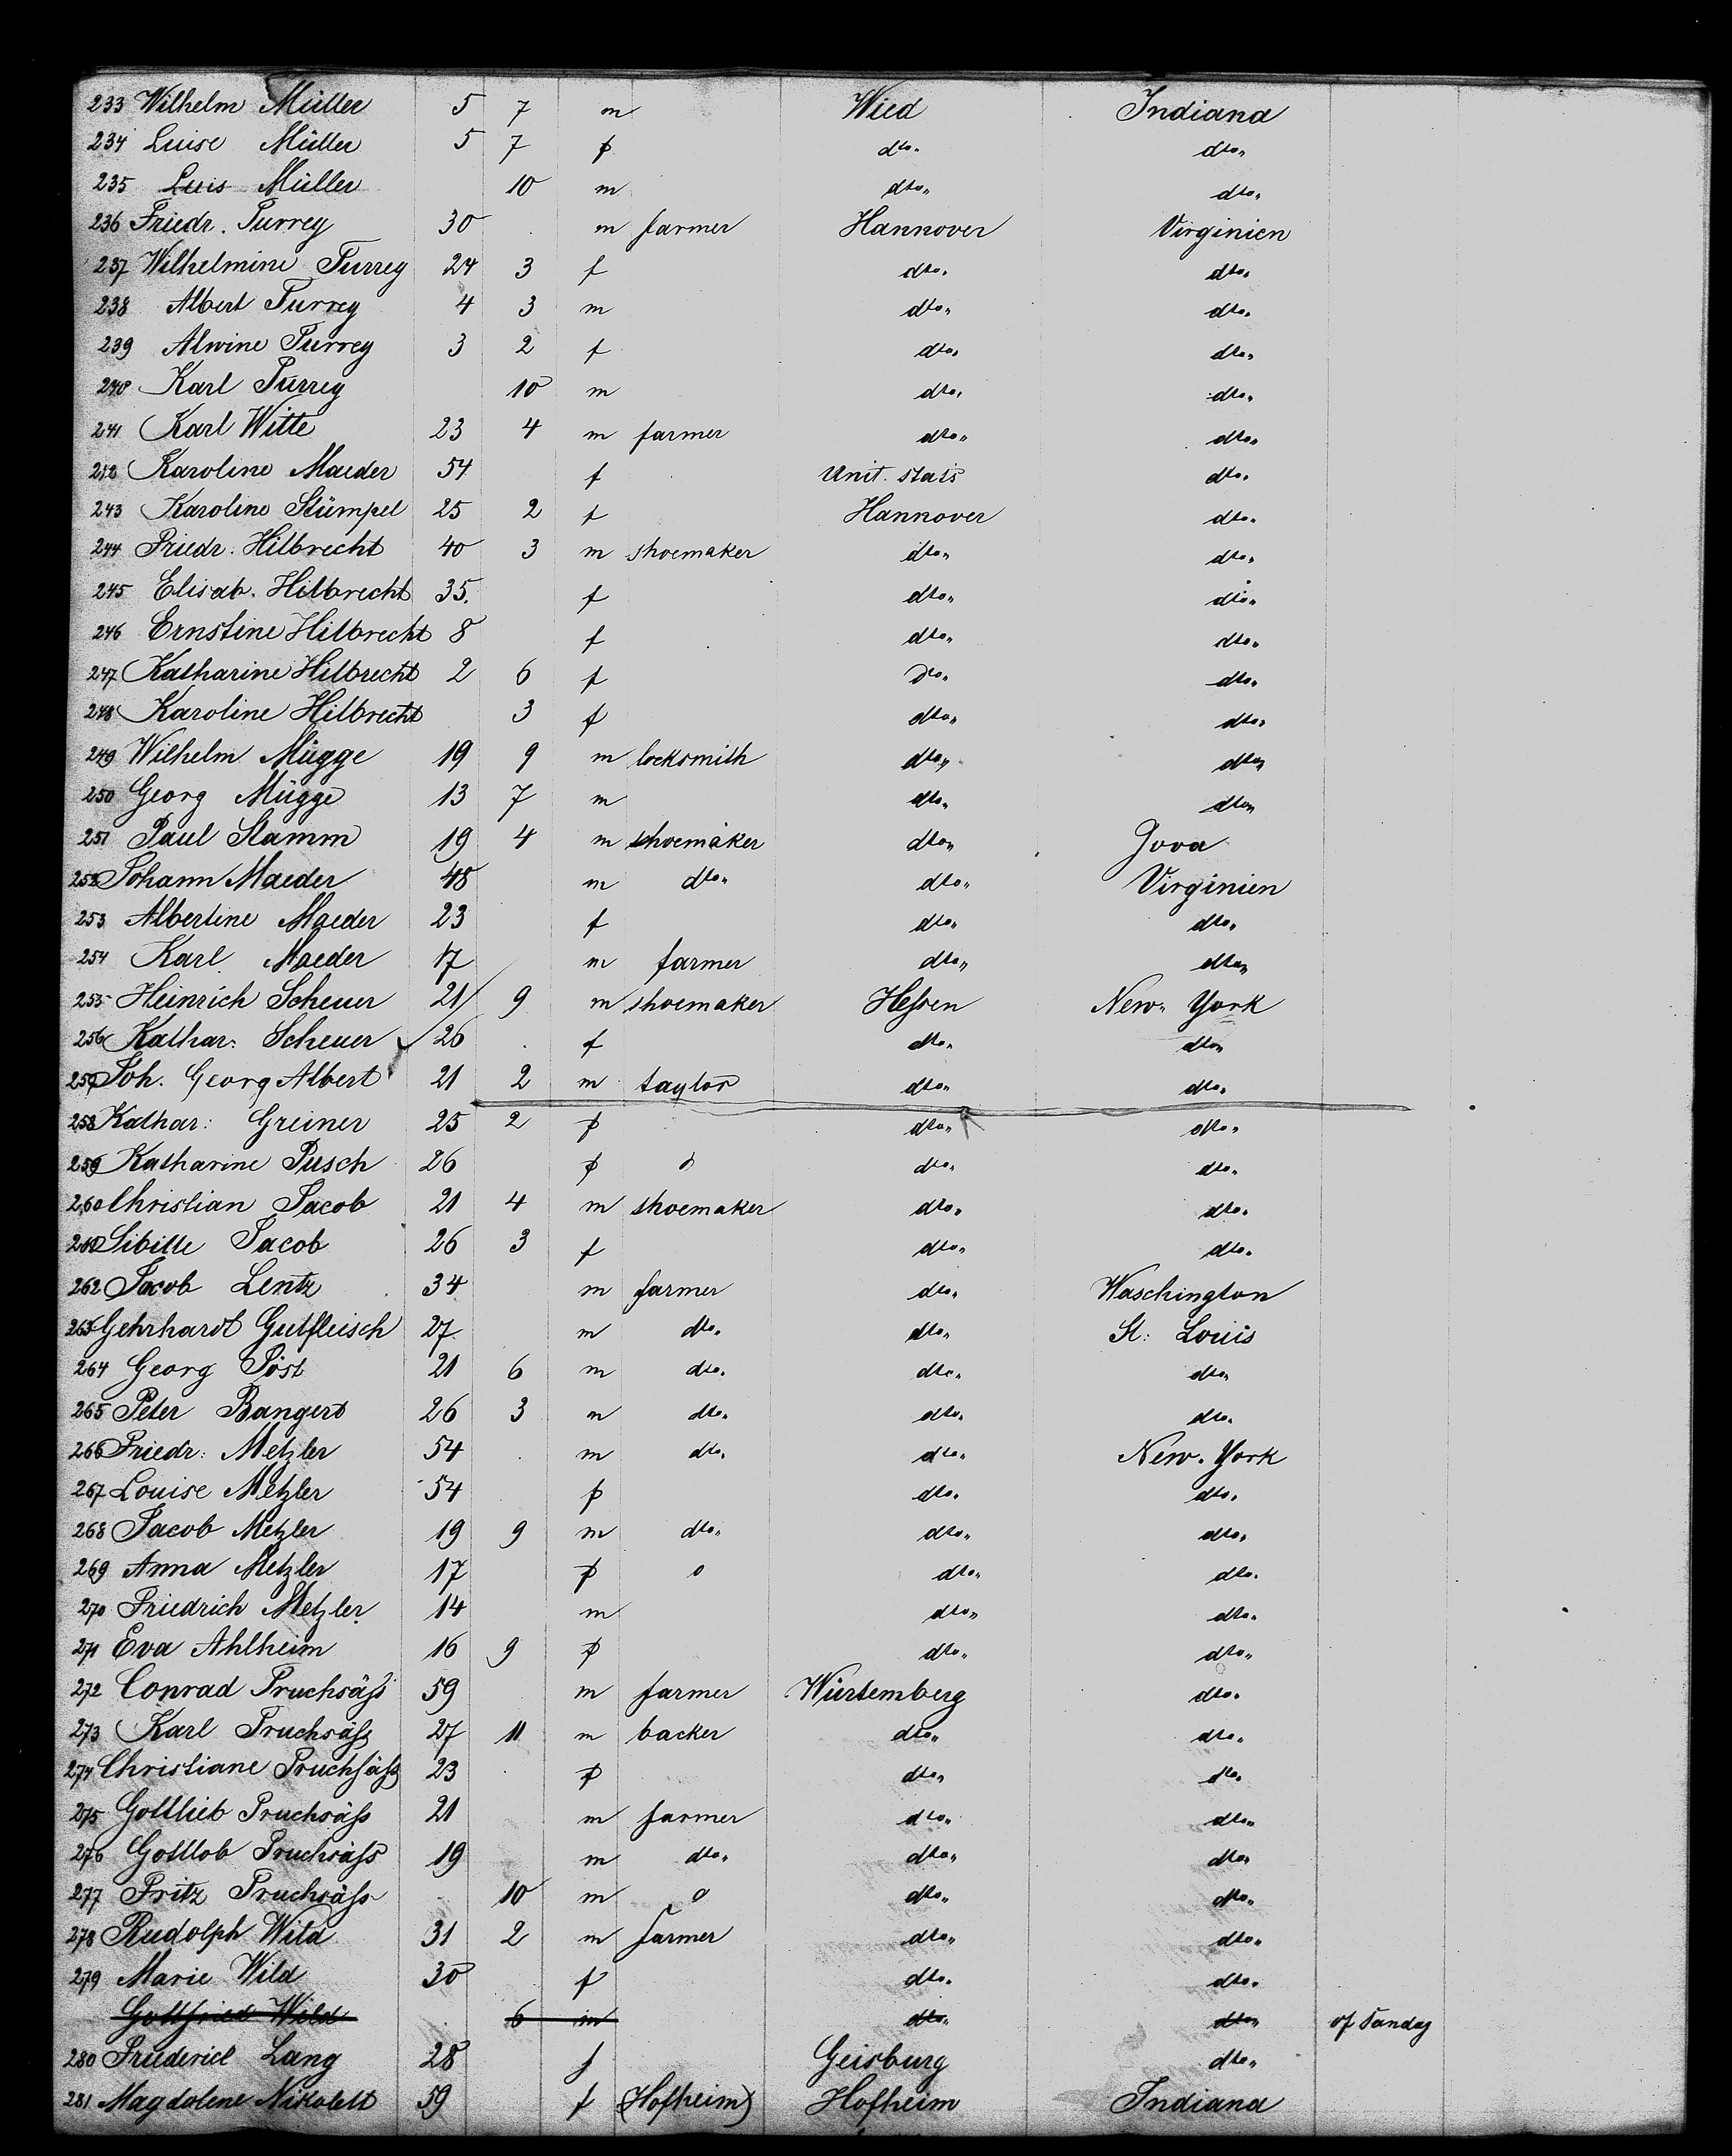 233 Wilhelm Müller 5 7 m Wied Indiana
234 Luise Müller 5 7 f dto. dto.
235 Luis Müller 10 m dto. dto.
236 Friedr. Turrey 30 m farmer Hannover Virginien
237 Wilhelmine Turrey 24 3 f dto. dto.
238 Albert Turrey 4 3 m dto. dto.
239 Alwine Turrey 3 2 f dto. dto.
240 Karl Turrey 10 m dto. dto.
241 Karl Witte 23 4 m farmer dto. dto.
242 Karoline Maeder 54 f Unit. stats dto.
243 Karoline Stümpel 25 2 f Hannover dto.
244 Friedr. Hilbrecht 40 3 m shoemaker dto. dto.
245 Elisab. Hilbrecht 35. f dto. dto.
246 Ernstine Hilbrecht 8 f dto. dto.
247 Katharine Hilbrecht 2 6 f dto. dto.
248 Karoline Hilbrecht 3 f dto. dto.
249 Wilhelm Mügge 19 9 m locksmith dto. dto.
250 Georg Mügge 13 7 m dto. dto.
251 Paul Stamm 19 4 m shoemaker dto. Jova
252 Johann Maeder 48 m dto. dto. Virginien
253 Albertine Maeder 23 f dto. dto.
254 Karl Maeder 17 m farmer dto. dto.
255 Heinrich Scheuer 21 9 m shoemaker Heſsen New-York
256 Kathar: Scheuer 26 f dto. dto.
257 Joh. Georg Albert 21 2 m taylor dto. dto.
258 Kathar: Greiner 25 2 f dto. dto.
259 Katharine Pusch 26 f dto. dto.
260 Christian Jacob 21 4 m shoemaker dto. dto.
261 Sibille Jacob 26 3 f dto. dto.
262 Jacob Lentz 34 m farmer dto. Waschington
263 Gehrhardt Gutfleisch 27 m dto. dto. St: Louis
264 Georg Jöst 21 6 m dto. dto. dto.
265 Peter Bangert 26 3 m dto. dto. dto.
266 Friedr: Metzler 54 m dto. dto. New-York
267 Louise Metzler 54 f dto. dto.
268 Jacob Metzler 19 9 m dto. dto. dto.
269 Anna Metzler 17 f o dto. dto.
270 Friedrich Metzler 14 m dto. dto.
271 Eva Ahlheim 16 9 f dto. dto.
272 Conrad Truchsäſs 59 m farmer Würtemberg dto.
273 Karl Truchsäſs 27 11 m backer dto. dto.
274 Christiane Truchsäſs 23 f dto. dto.
275 Gottlieb Truchsäſs 21 m farmer dto. dto.
276 Gottlob Truchsäſs 19 m dto. dto. dto.
277 Fritz Truchsäſs 10 m o dto. dto.
278 Rudolph Wild 31 2 m farmer dto. dto.
279 Marie Wild 30 f dto. dto.
Gottfried Wild 6 m dto. dto.
280 Friederici Lang 28 f Geisburg dto.
281 Magdolene Nikolett 59 f (Hofheim) Hofheim Indiana